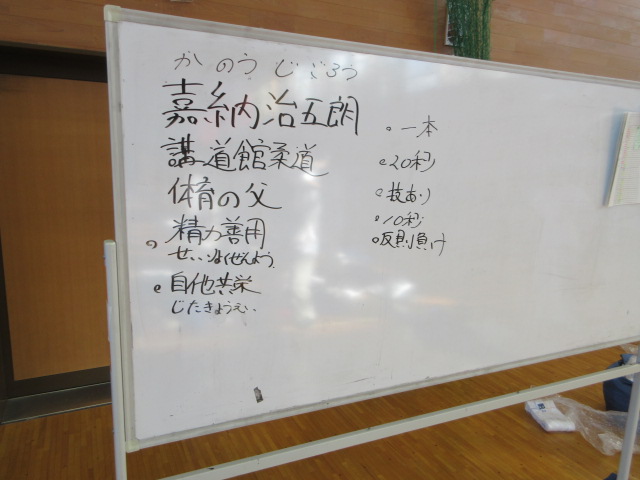 かのう じごろう
嘉納治五朗
講道館柔道
体育の父
精力善用
せいりょくぜんよう
自他共栄
じたきょうえい
。一本
。20秒
。技あり
。10秒
。反則負け